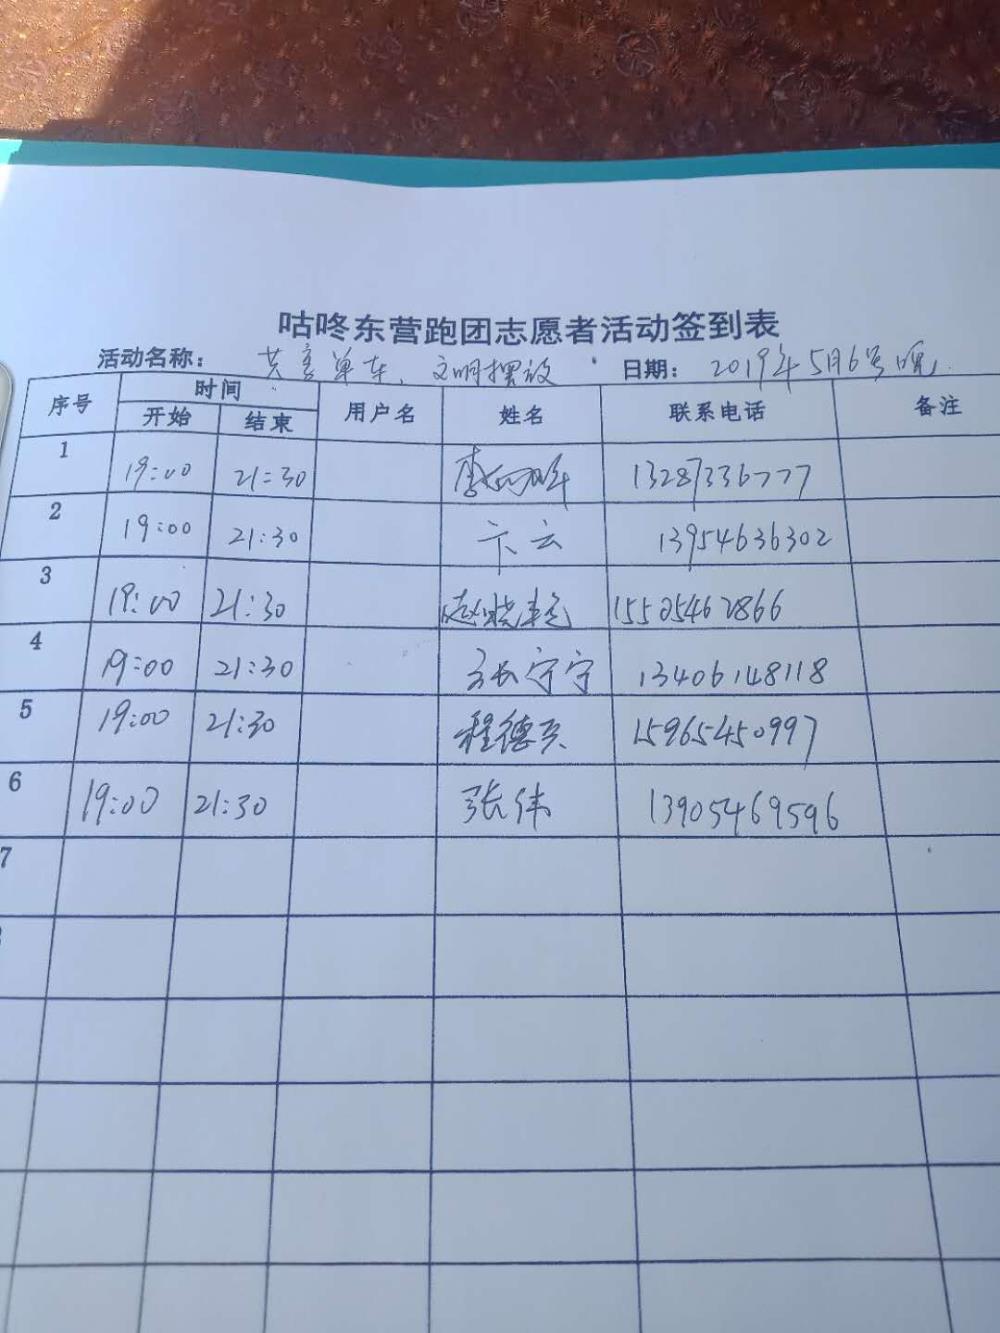 咕咚东营跑团志愿者活动签到表
活动名称： 共享单车、文明摆放 日期： 2019年5月6号晚
序号 时间 用户名 姓名 联系电话 备注
开始 结束
1 19:00 21:30 13287336777
2 19:00 21:30 卞云 13954636302
3 19:00 21:30 赵晓 15505462866
4 19:00 21:30 张宁宁 13406148118
5 19:00 21:30 程德 15965450997
6 19:00 21:30 张伟 13905469596
7